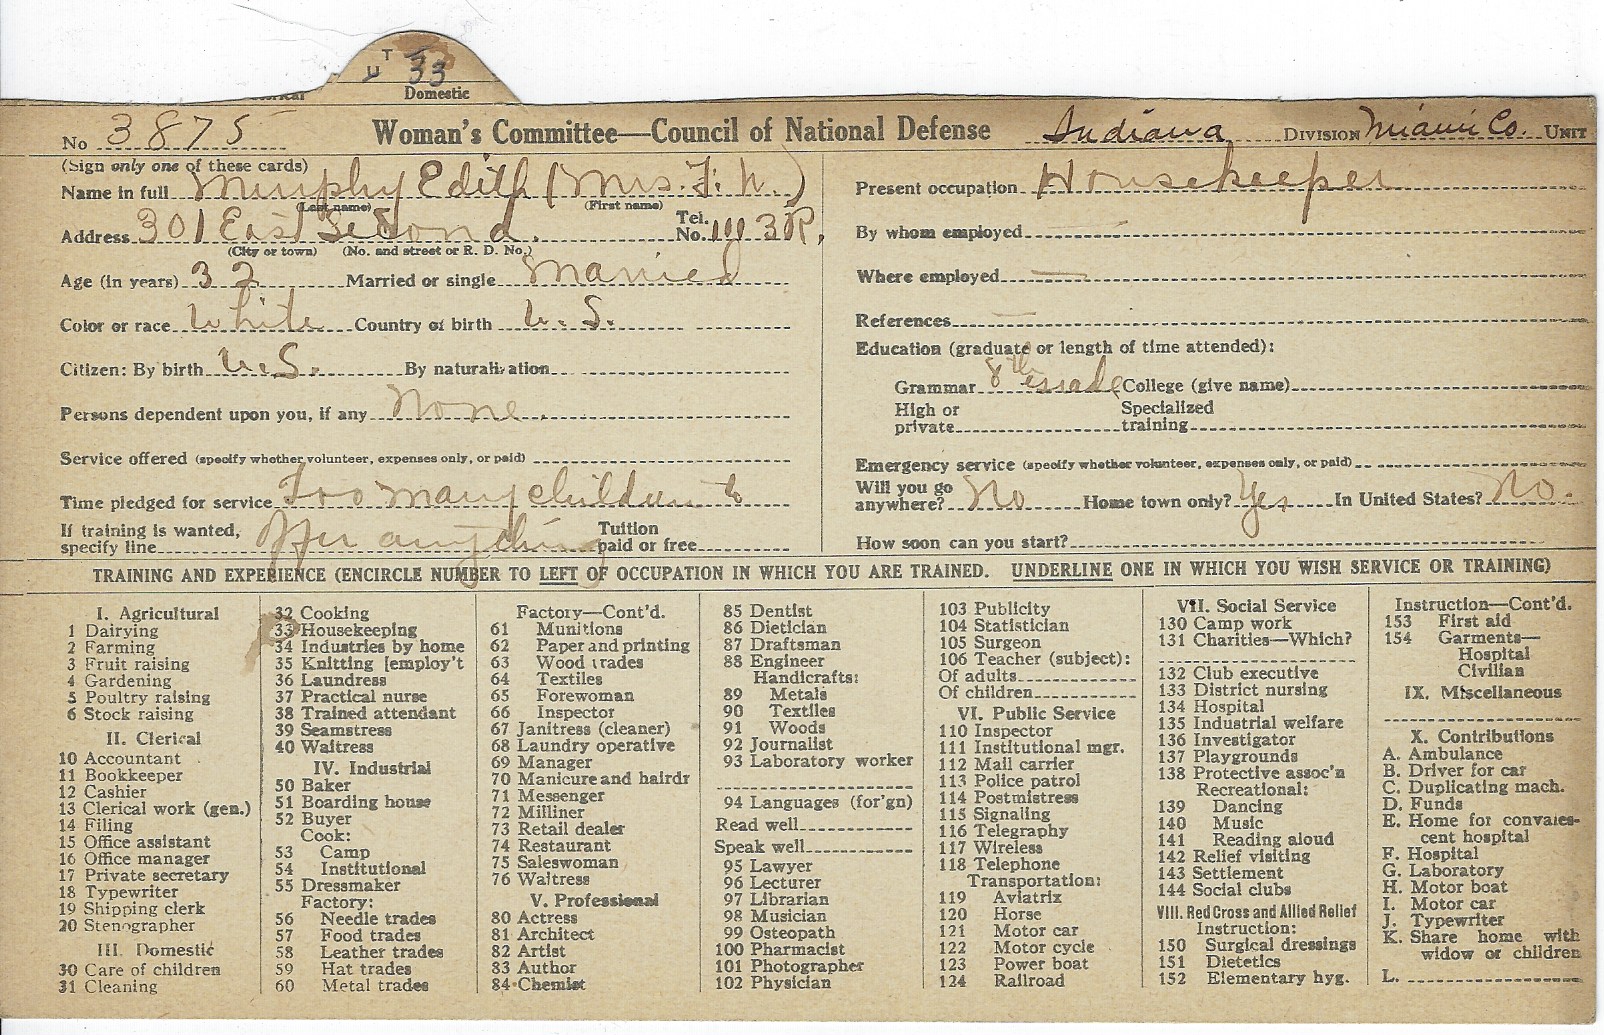 T
U 33
Domestic
No 3875 Woman's Committee—Council of National Defense Indiana DIVISION Miami Co. UNIT
(Sign only one of these cards)
Name in full Murphy Edith (Mrs. F. W.)
(Last name) (First name)
Address 301 East Second. Tel. No. 1113R.
(City or town) (No. and street or R. D. No.)
Age (in years) 32 Married or single Married
Color or race White Country of birth U. S.
Citizen: By birth U.S. By naturalization
Persons dependent upon you, if any None.
Service offered (specify whether volunteer, expenses only, or paid)
Time pledged for service Too many children to
If training is wanted, specify line offer anything Tuition paid or free
Present occupation Housekeeper
By whom employed —
Where employed —
References —
Education (graduate or length of time attended):
Grammar 8th College (give name)
High or private Specialized training
Emergency service (specify whether volunteer, expenses only, or paid)
Will you go anywhere? No Home town only? Yes In United States? No.
How soon can you start?
TRAINING AND EXPERIENCE (ENCIRCLE NUMBER TO LEFT OF OCCUPATION IN WHICH YOU ARE TRAINED. UNDERLINE ONE IN WHICH YOU WISH SERVICE OR TRAINING)
I. Agricultural
1 Dairying
2 Farming
3 Fruit raising
4 Gardening
5 Poultry raising
6 Stock raising
II. Clerical
10 Accountant
11 Bookkeeper
12 Cashier
13 Clerical work (gen.)
14 Filing
15 Office assistant
16 Office manager
17 Private secretary
18 Typewriter
19 Shipping clerk
20 Stenographer
III. Domestic
30 Care of children
31 Cleaning
32 Cooking
33 Housekeeping
34 Industries by home
35 Knitting [employ't
36 Laundress
37 Practical nurse
38 Trained attendant
39 Seamstress
40 Waitress
IV. Industrial
50 Baker
51 Boarding house
52 Buyer
Cook:
53 Camp
54 Institutional
55 Dressmaker
Factory:
56 Needle trades
57 Food trades
58 Leather trades
59 Hat trades
60 Metal trades
Factory—Cont'd.
61 Munitions
62 Paper and printing
63 Wood trades
64 Textiles
65 Forewoman
66 Inspector
67 Janitress (cleaner)
68 Laundry operative
69 Manager
70 Manicure and hairdr
71 Messenger
72 Milliner
73 Retail dealer
74 Restaurant
75 Saleswoman
76 Waitress
V. Professional
80 Actress
81 Architect
82 Artist
83 Author
84 Chemist
85 Dentist
86 Dietician
87 Draftsman
88 Engineer
Handicrafts:
89 Metals
90 Textiles
91 Woods
92 Journalist
93 Laboratory worker
94 Languages (for'gn)
Read well
Speak well
95 Lawyer
96 Lecturer
97 Librarian
98 Musician
99 Osteopath
100 Pharmacist
101 Photographer
102 Physician
103 Publicity
104 Statistician
105 Surgeon
106 Teacher (subject):
Of adults
Of children
VI. Public Service
110 Inspector
111 Institutional mgr.
112 Mail carrier
113 Police patrol
114 Postmistress
115 Signaling
116 Telegraphy
117 Wireless
118 Telephone
Transportation:
119 Aviatrix
120 Horse
121 Motor car
122 Motor cycle
123 Power boat
124 Railroad
VII. Social Service
130 Camp work
131 Charities—Which?
132 Club executive
133 District nursing
134 Hospital
135 Industrial welfare
136 Investigator
137 Playgrounds
138 Protective assoc'n
Recreational:
139 Dancing
140 Music
141 Reading aloud
142 Relief visiting
143 Settlement
144 Social clubs
VIII. Red Cross and Allied Relief
Instruction:
150 Surgical dressings
151 Dietetics
152 Elementary hyg.
Instruction—Cont'd.
153 First aid
154 Garments—
Hospital
Civilian
IX. Miscellaneous
X. Contributions
A. Ambulance
B. Driver for car
C. Duplicating mach.
D. Funds
E. Home for convales-
cent hospital
F. Hospital
G. Laboratory
H. Motor boat
I. Motor car
J. Typewriter
K. Share home with
widow or children
L.